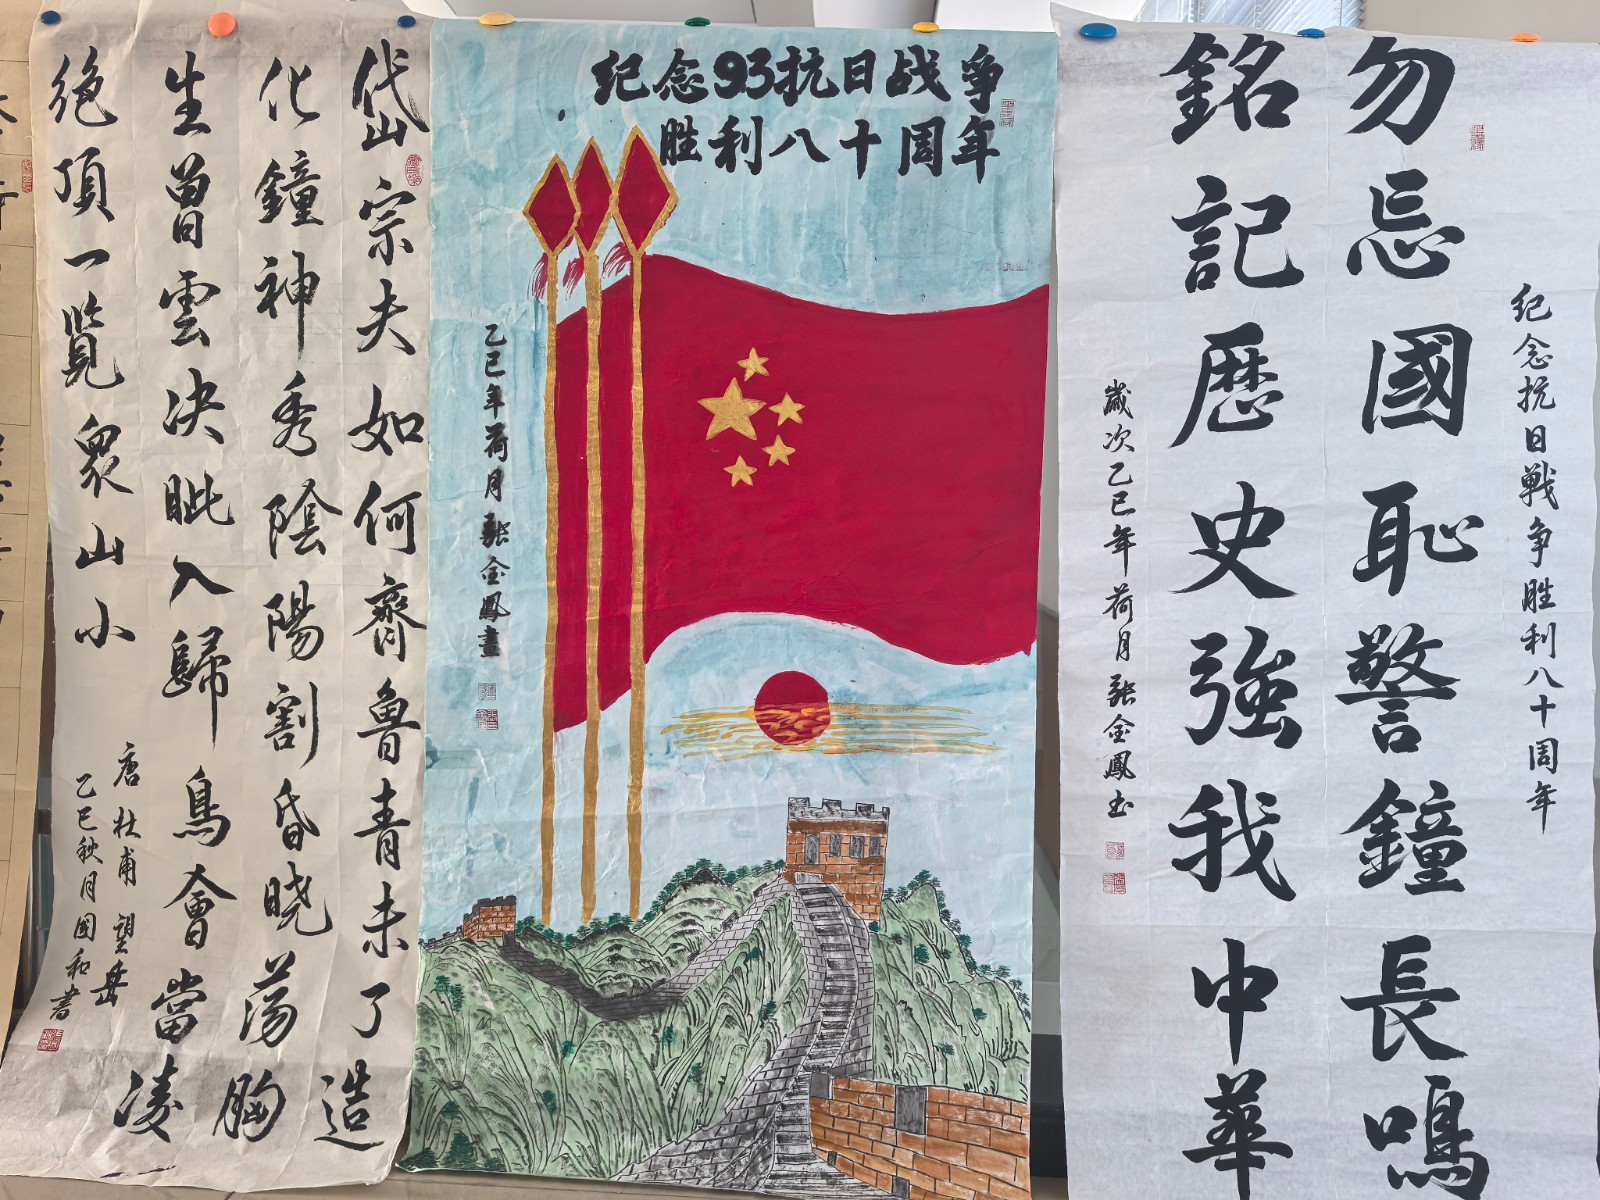 岱宗夫如何齊魯青未了造
化鐘神秀陰陽割昏晓蕩胸
生曾雲决眦入歸鳥會當凌
絶頂一覽衆山小
唐杜甫望岳
乙巳秋月國和書
纪念93抗日战争
胜利八十周年
乙巳年荷月張金鳳畫
纪念抗日戰争胜利八十周年
勿忘國恥警鐘長鳴
銘記歴史強我中華
歲次乙巳年荷月張金鳳书